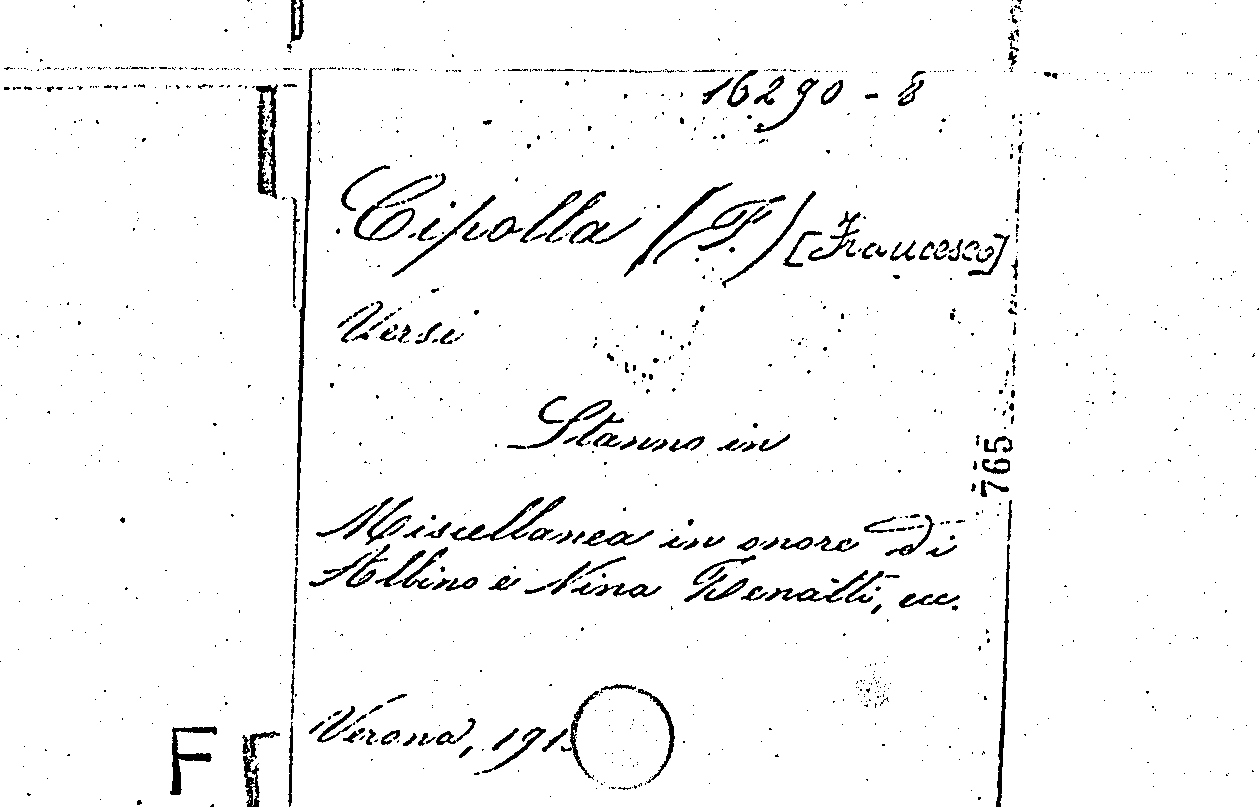 16290 - 8
Cipolla (F.) [Francesco]
Versi
Stanno in
765
Miscellanea in onore di
Albino e Nina Zenatti, ecc.
Verona, 191
F